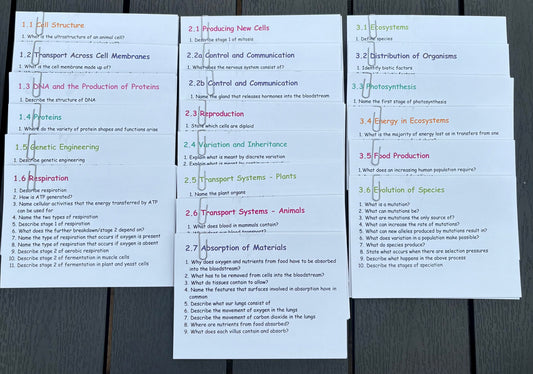 1.1 Cell Structure
1. What is the ultrastructure of an animal cell?
1.2 Transport Across Cell Membranes
1. What is the cell membrane made up of?
1.3 DNA and the Production of Proteins
1. Describe the structure of DNA
1.4 Proteins
1. Where do the variety of protein shapes and functions arise
1.5 Genetic Engineering
1. Describe genetic engineering
1.6 Respiration
1. Describe respiration
2. How is ATP generated?
3. Name cellular activities that the energy transferred by ATP
can be used for
4. Name the two types of respiration
5. Describe stage 1 of respiration
6. What does the further breakdown/stage 2 depend on?
7. Name the type of respiration that occurs if oxygen is present
8. Name the type of respiration that occurs if oxygen is absent
9. Describe stage 2 of aerobic respiration
10. Describe stage 2 of fermentation in muscle cells
11. Describe stage 2 of fermentation in plant and yeast cells
2.1 Producing New Cells
1. Describe stage 1 of mitosis
2.2a Control and Communication
1. What does the nervous system consist of?
2.2b Control and Communication
1. Name the gland that releases hormones into the bloodstream
2.3 Reproduction
1. State which cells are diploid
2.4 Variation and Inheritance
1. Explain what is meant by discrete variation
2. Explain what is meant by continuous variation
2.5 Transport Systems - Plants
1. Name the plant organs
2.6 Transport Systems - Animals
1. What does blood in mammals contain?
2.7 Absorption of Materials
1. Why does oxygen and nutrients from food have to be absorbed
into the bloodstream?
2. What has to be removed from cells into the bloodstream?
3. What do tissues contain to allow?
4. Name the features that surfaces involved in absorption have in
common
5. Describe what our lungs consist of
6. Describe the movement of oxygen in the lungs
7. Describe the movement of carbon dioxide in the lungs
8. Where are nutrients from food absorbed?
9. What does each villus contain and absorb?
3.1 Ecosystems
1. Define species
3.2 Distribution of Organisms
1. Identify biotic factors
3.3 Photosynthesis
1. Name the first stage of photosynthesis
3.4 Energy in Ecosystems
1. What is the majority of energy lost as in transfers from one
3.5 Food Production
1. What does an increasing human population require?
3.6 Evolution of Species
1. What is a mutation?
2. What can mutations be?
3. What are mutations the only source of?
4. What can increase the rate of mutations?
5. What can new alleles produced by mutations result in?
6. What does variation in a population make possible?
7. What do species produce?
8. State what occurs when there are selection pressures
9. Describe what happens in the above process
10. Describe the stages of speciation